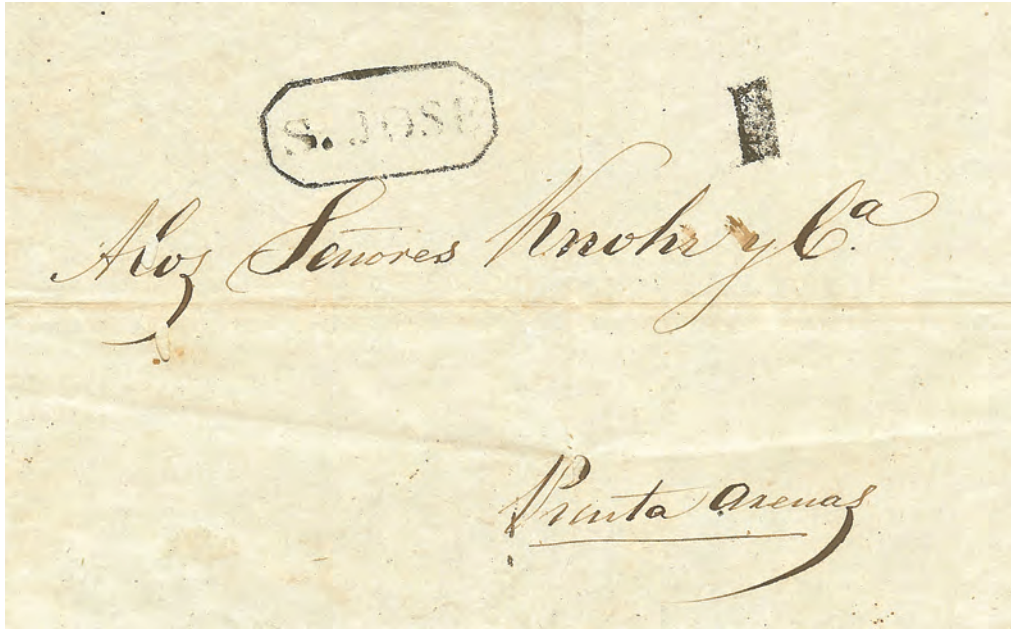 S. JOSE
A los Señores Knohr y Cª
Punta Arenas